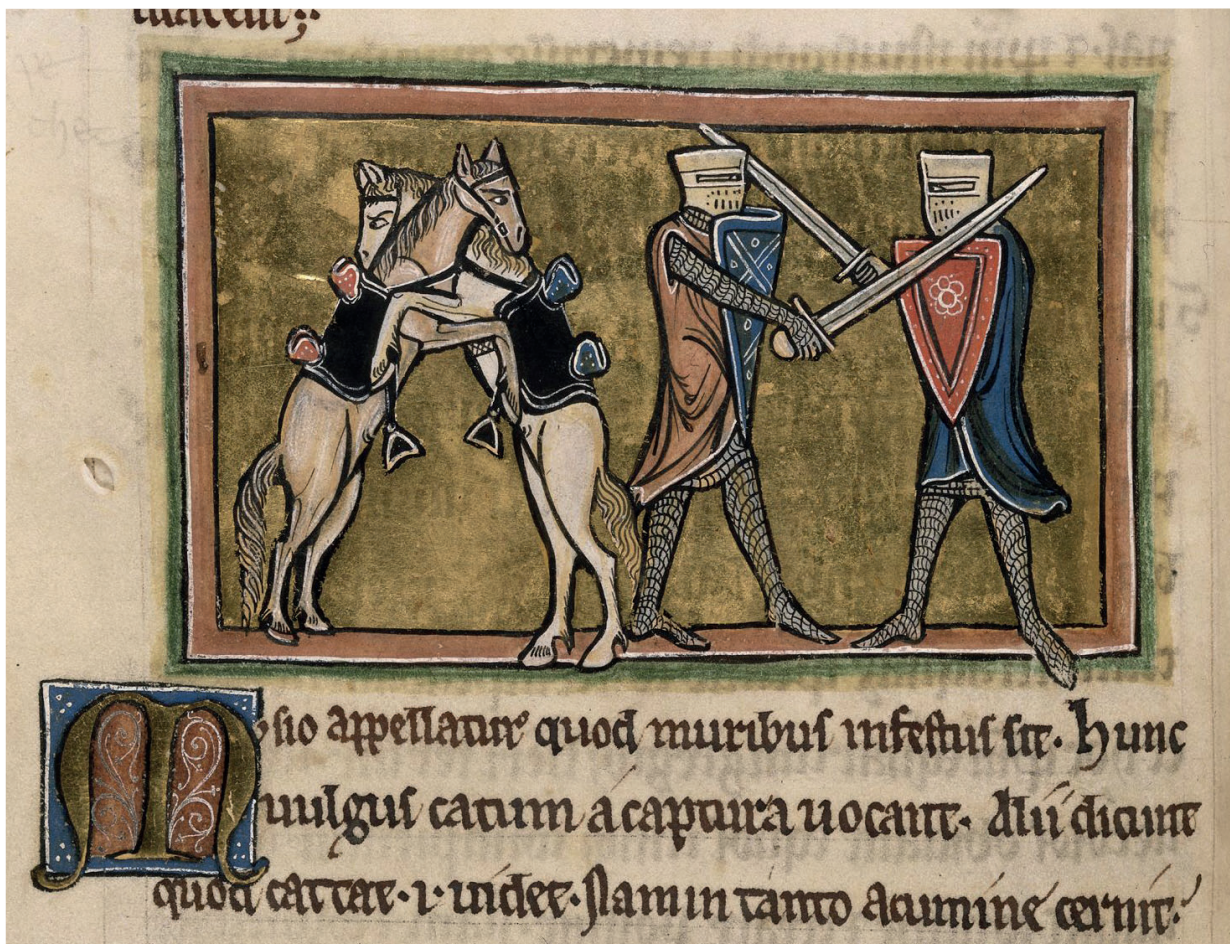 Musio appellatur quod muribus infestus sit. Hunc
uulgus catum a captura uocant. Alii dicunt
quod cattat .i. uidet. Nam in tanto acumine cernit.